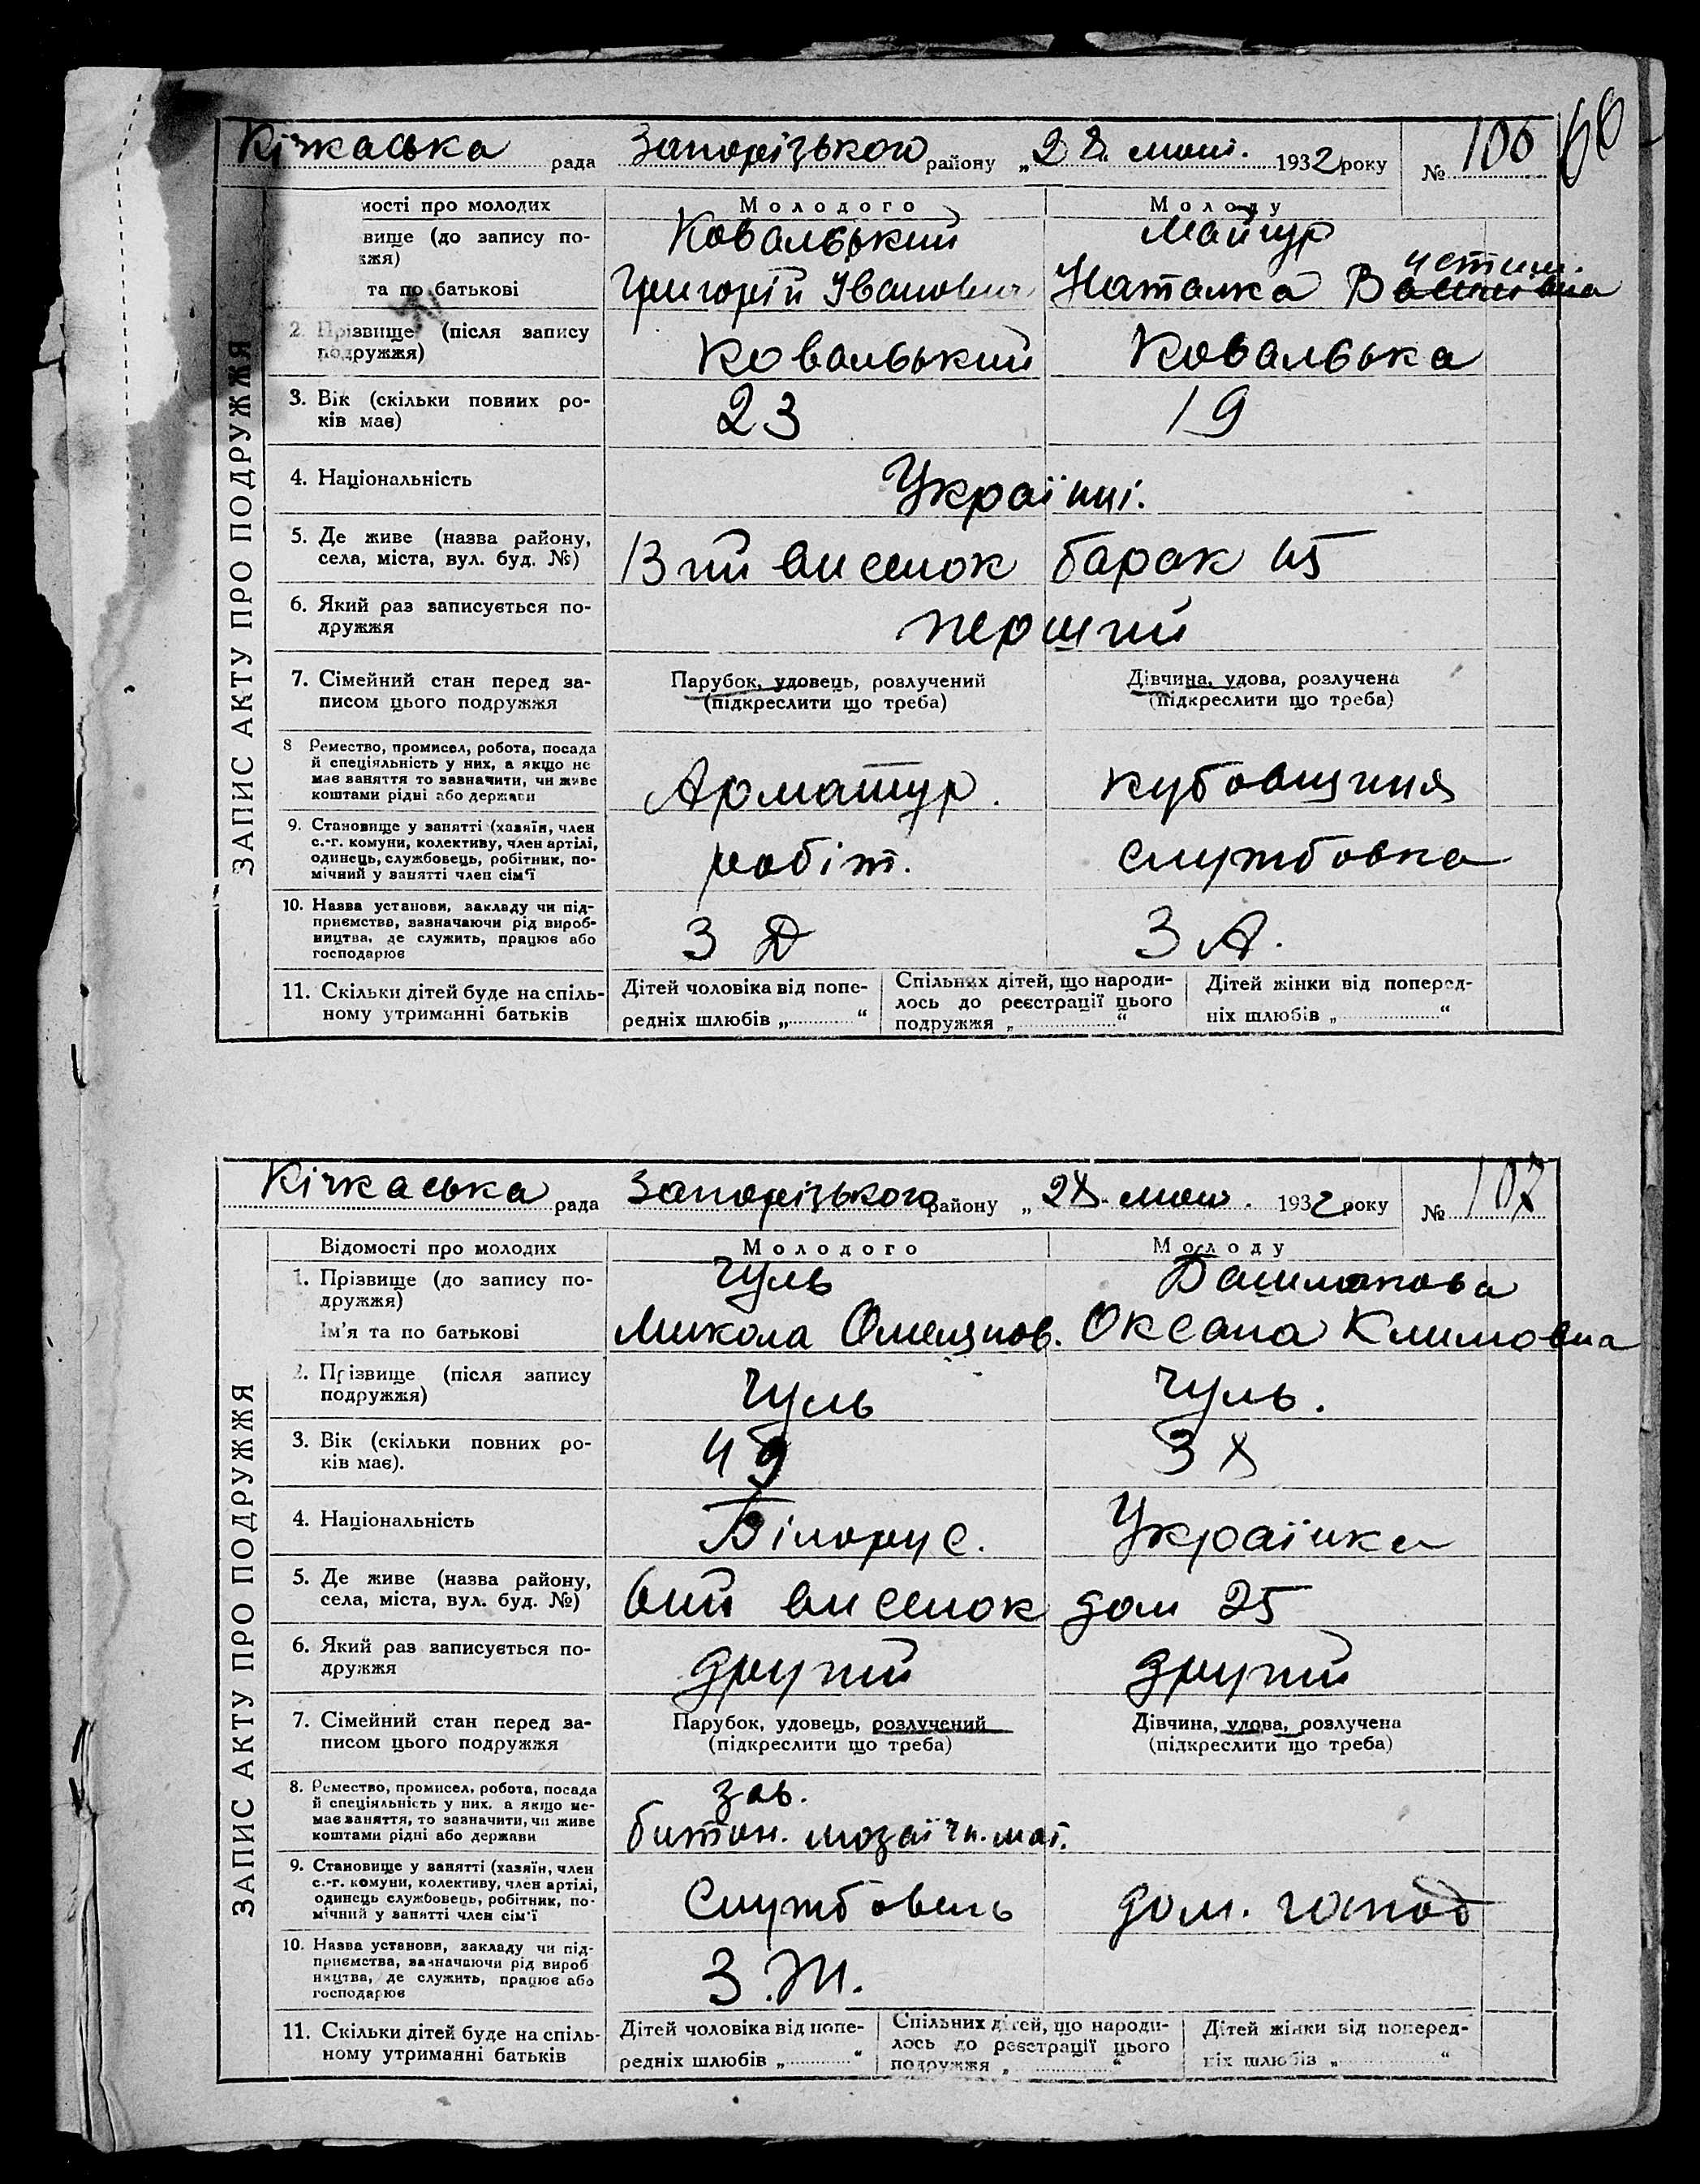 Кічкаська рада Запорізького району „28. 1932 року № 106
ЗАПИС АКТУ ПРО ПОДРУЖЖЯ
мості про молодих Молодого Молоду
вище (до запису по- Ковальський Майчур
жжя)
та по батькові Григорій Іванович Наталка
2. Прізвище (після запису Ковальський Ковальська
подружжя)
3. Вік (скільки повних ро- 23 19
ків має)
4. Національність Українці.
5. Де живе (назва району, 13 ий виселок барак 45
села, міста, вул. буд. №)
6. Який раз записується по- перший
дружжя
7. Сімейний стан перед за- Парубок, удовець, розлучений Дівчина, удова, розлучена
писом цього подружжя (підкреслити що треба) (підкреслити що треба)
8 Ремество, промисел, робота, посада
й спеціяльність у них, а якщо не
має заняття то зазначити, чи живе Арматур. кубовщиця
коштами рідні або держави
9. Становище у занятті (хазяїн, член
с.-г. комуни, колективу, член артілі, робіт. службовка
одинець, службовець, робітник, по-
мічний у занятті член сім'ї
10. Назва установи, закладу чи під-
приємства, зазначаючи рід вироб- З Д З А.
ництва, де служить, працює або
господарює
11. Скільки дітей буде на спіль- Дітей чоловіка від попе- Спільних дітей, що народи- Дітей жінки від поперед-
ному утриманні батьків редніх шлюбів „ “ лось до реєстрації цього ніх шлюбів „ “
подружжя „ “
Кічкаська рада Запорізького району „28. 1932 року № 107
ЗАПИС АКТУ ПРО ПОДРУЖЖЯ
Відомості про молодих Молодого Молоду
1. Прізвище (до запису по- Чуль Башмакова
дружжя)
Ім'я та по батькові Микола Омелянов. Оксана Климовна
2. Прізвище (після запису Чуль Чуль.
подружжя)
3. Вік (скільки повних ро- 49 38
ків має).
4. Національність Білорус. Українка
5. Де живе (назва району, 6ий виселок дом 25
села, міста, вул. буд. №)
6. Який раз записується по- другий другий
дружжя
7. Сімейний стан перед за- Парубок, удовець, розлучений Дівчина, удова, розлучена
писом цього подружжя (підкреслити що треба) (підкреслити що треба)
8. Ремество, промисел, робота, посада зав.
й спеціяльність у них, а якщо не-
має заняття, то зазначити, чи живе битон. мозаїчн. май.
коштами рідні або держави
9. Становище у занятті (хазяїн, член
с.-г. комуни, колективу, член артілі,
одинець службовець, робітник, по- Службовець дом. господ
мічний у занятті член сім'ї
10. Назва установи, закладу чи під-
приємства, зазначаючи рід вироб З.Ж.
ництва, де служить, працює або
господарює
11. Скільки дітей буде на спіль- Дітей чоловіка від попе- Спільних дітей, що народи- Дітей жінки від поперед-
ному утриманні батьків редніх шлюбів „ “ лось до реєстрації цього ніх шлюбів „ “
подружжя „ “